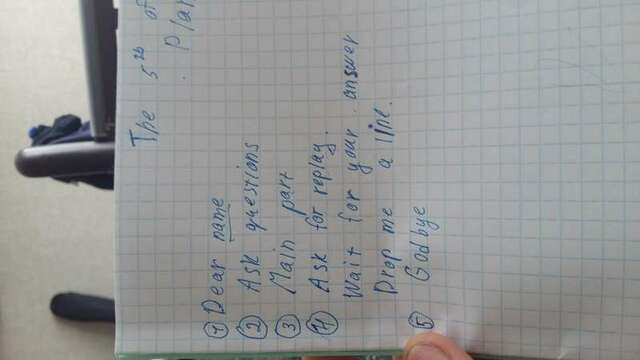 The 5th of
Plan
① Dear name
② Ask questions
③ Main part
④ Ask for replay.
Wait for your answer
Drop me a line.
⑤ Godbye